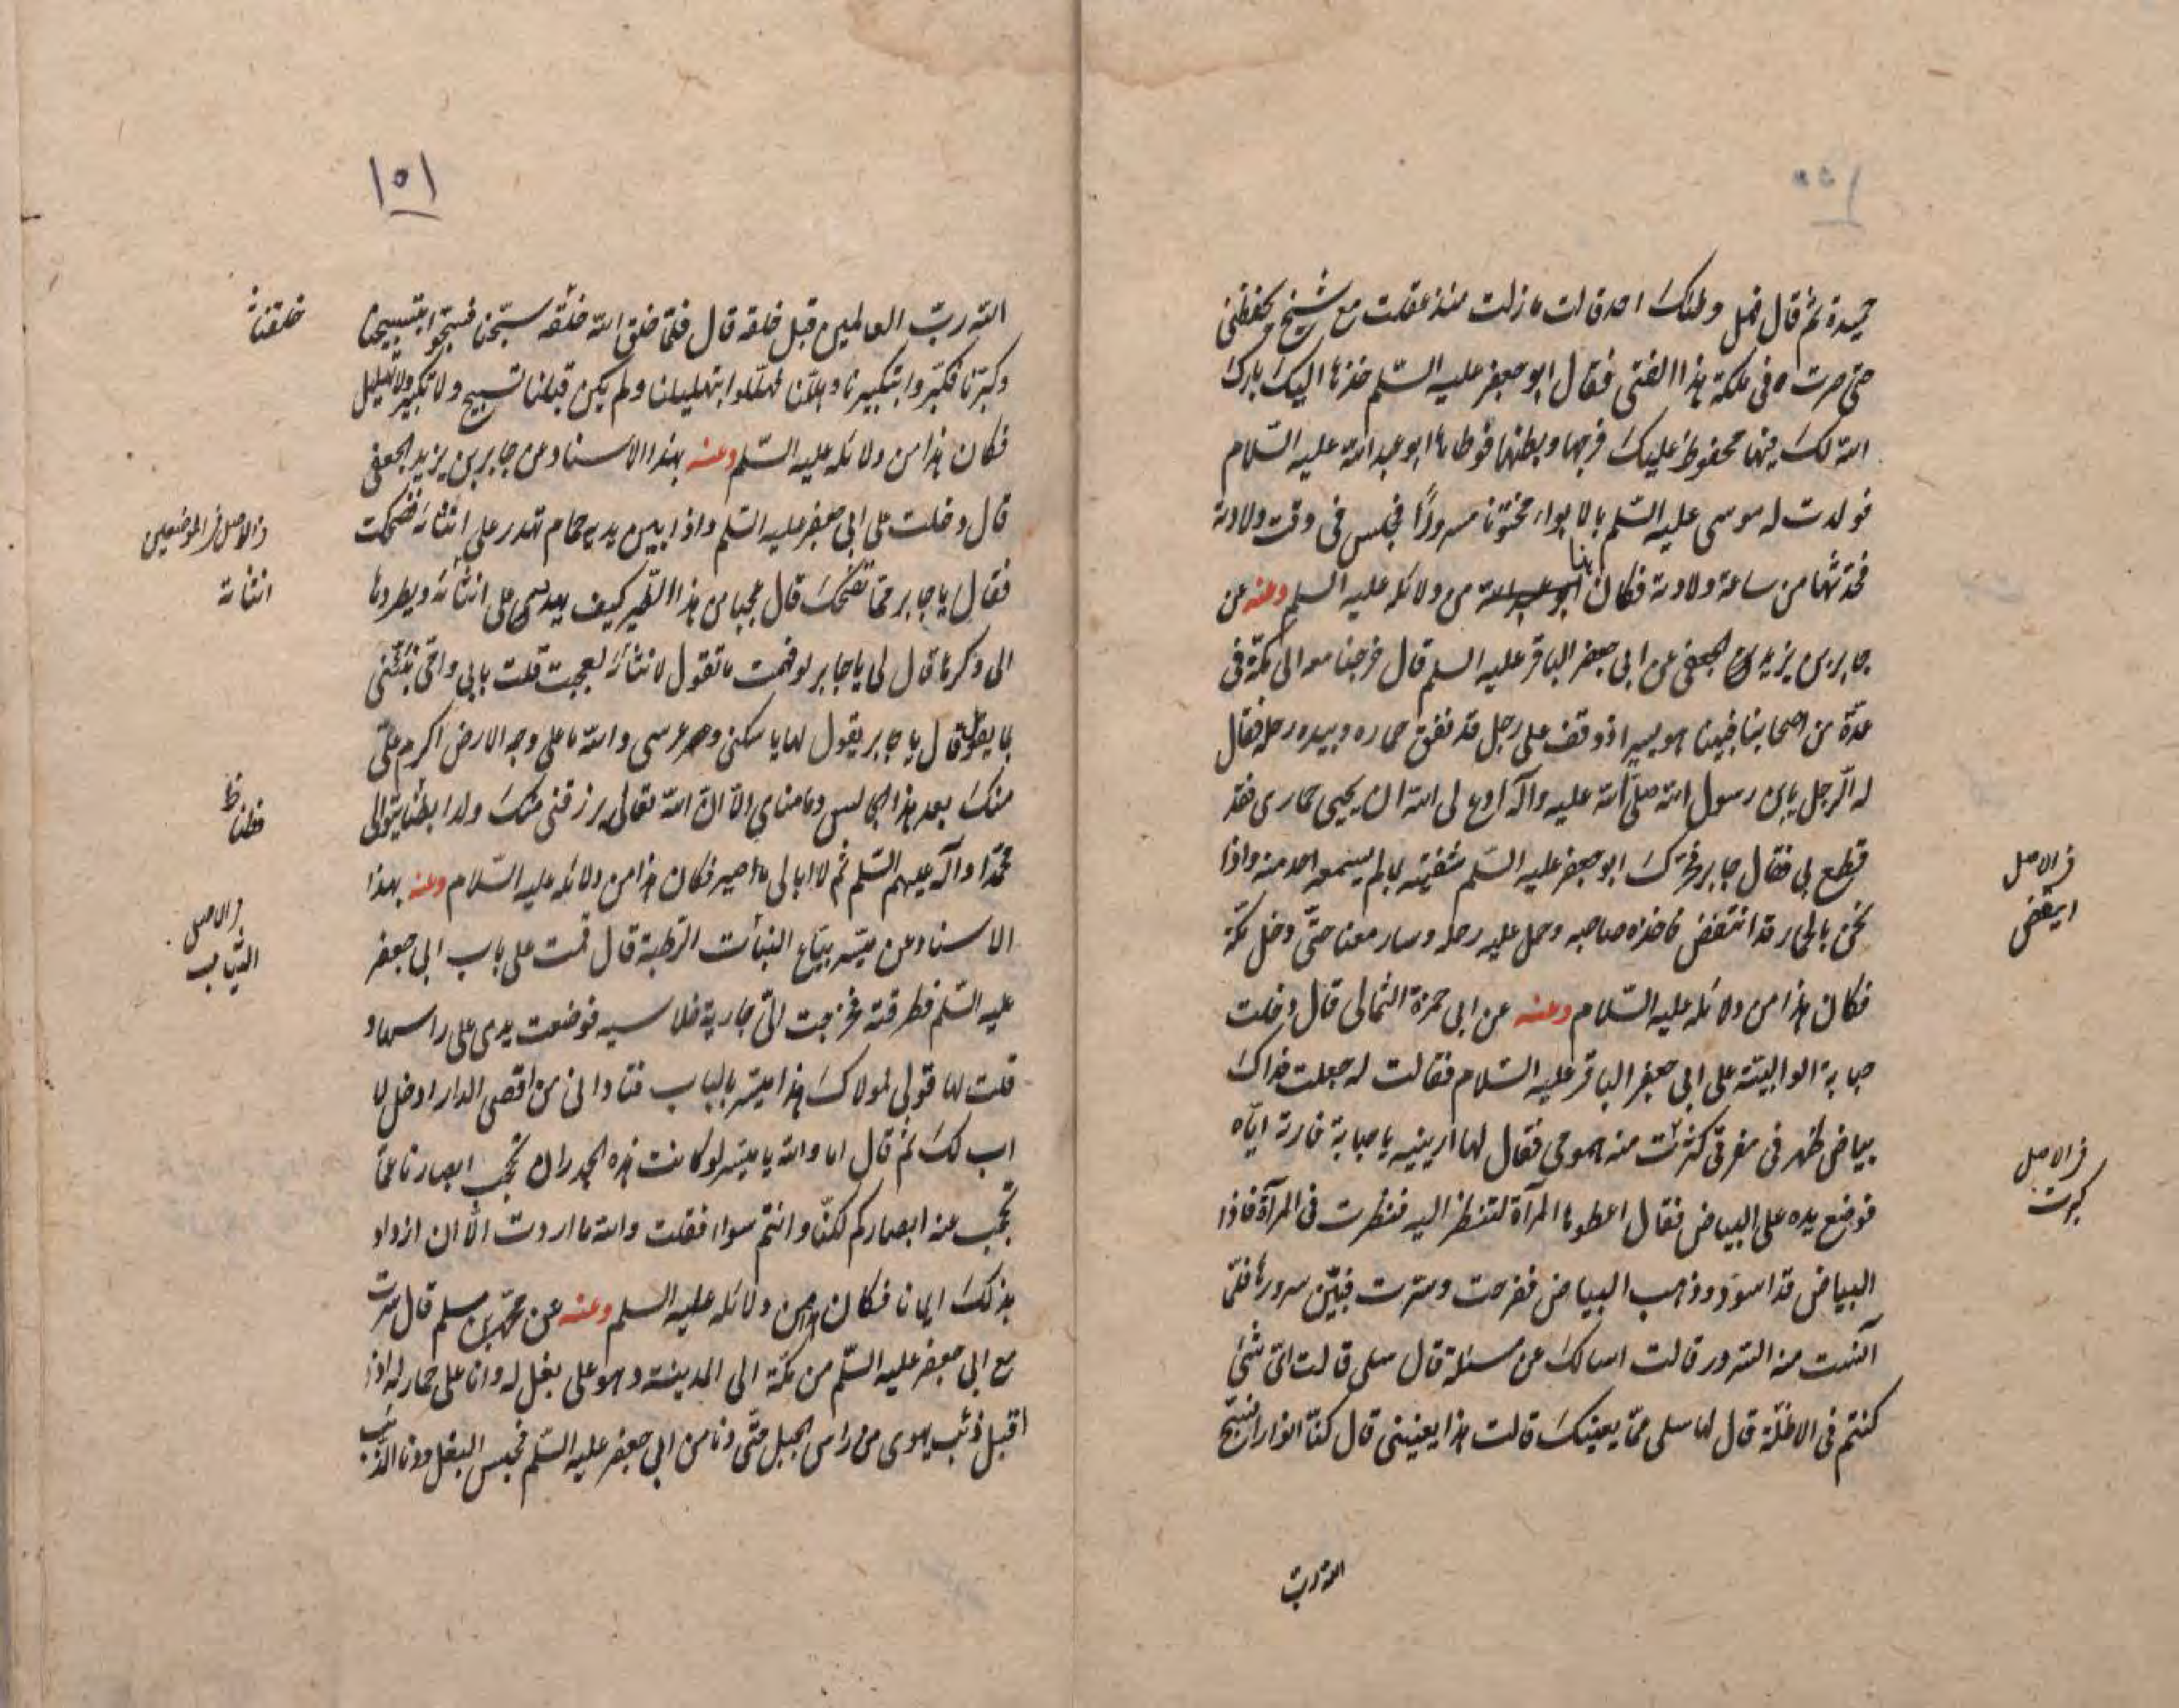 ١٥٠
حميدة ثم قال فهل ولمنك احد قالت ما زلت منذ عقلت مع شيخ يحفظني
حتى صرت في ملكة هذا الفتى فقال ابو جعفر عليه السلم خذها اليك بارك
الله لك فيها محفوظ عليك فرجها وبطنها فوطاها ابو عبد الله عليه السلام
فولدت له موسى عليه السلم بالابواء مختونا مسرورًا فجلس في وقت ولادته
فحدثها من ساعة ولادته فكان هذا من دلائله عليه السلم وعنه عن
جابر بن يزيد الجعفي عن ابي جعفر الباقر عليه السلم قال خرجنا معه الى مكة في
عدّة من اصحابنا فبينا هو يسير اذ وقف على رجل قد نفق حماره وبيده رحله فقال
له الرجل يابن رسول الله صلى الله عليه وآله ادع لى الله ان يحيى حمارى فقد
قطع بي فقال جابر فحرّك ابو جعفر عليه السلم شفتيه بما لم يسمعه احد منه واذا
في الاصل
ايتقض
نحن بالحمار قد انتفض فاخذه صاحبه وحمل عليه رحله وسار معنا حتّى دخل مكّة
فكان هذا من دلائله عليه السلام وعنه عن ابي حمزة الثمالي قال دخلت
حبابة الوالبيته على ابي جعفر الباقر عليه السلام فقالت له جعلت فداك
بياض ظهر في مفرقي كثرت منه همومي فقال لها ارينيه يا حبابة فارته ايّاه
في الاصل
كبرت
فوضع يده على البياض فقال اعطوها المرآة لتنظر اليه فنظرت في المرآة فاذا
البياض قد اسود وذهب البياض ففرحت وسرّت فبيّن سرورها فلمّا
آنست منه السرور قالت اسالك عن مسئلة قال سلى قالت اىّ شئ
كنتم فى الاظلّة قال لها سلى ممّا يعنيك قالت هذا يعنينى قال كنّا انوارا نسبّح
الله ربّ
١٥١
الله ربّ العالمين قبل خلقه قال فلمّا خلق الله خلقه سبّحنا فسبّحوا بتسبيحنا
خلقنا
وكبّرنا فكبّروا بتكبيرنا وهلّلنا فهلّلوا بتهليلنا ولم يكن قبلنا تسبيح ولا تكبير ولا تهليل
فكان هذا من دلائله عليه السّلم وعنه بهذا الاسناد عن جابر بن يزيد الجعفي
قال دخلت على ابي جعفر عليه السلم واذا بين يديه حمام تهدر على انثائه فضحكت
في الاصل في الموضعين
انثانه
فقال يا جابر ممّا تضحك قال عجبا من هذا الطير كيف يهدر على انثائه ويطردها
الى وكرها قال لى يا جابر لو فهمت ما تقول لانثائه لعجبت قلت بابي وامّي نبئني
بما يقول قال يا جابر يقول لها يا سكنى وعرسى والله ما على وجه الارض اكرم علىّ
منك بعد هذا الجالس وما مناى الّا ان الله تعالى يرزقنى منك ولدا يتوالى
محمّدا وآله عليهم السّلم ثم لا ابالى ما اصير فكان هذا من دلائله عليه السلام وعنه بهذا
الاسناد عن ميسر بيّاع النبات الرّطبة قال قمت على باب ابي جعفر
في الاصل
الثياب
عليه السّلم فطرقته فخرجت الىّ جارية خلاسيه فوضعت يدى على راسها و
قلت لها قولى لمولاك هذا ميسّر بالباب فنادانى من اقصى الدار ادخل لا
اب لك ثم قال اما والله يا ميسر لو كانت هذه الجدران تحجب ابصارنا عمّا
تحجب عنه ابصاركم لكنّا وانتم سواء فقلت والله ما اردت الّا ان ازداد
بذلك ايمانا فكان هذا من دلائله عليه السلم وعنه عن محمّد بن مسلم قال سرت
مع ابي جعفر عليه السّلم من مكّة الى المدينة وهو على بغل له وانا على حمار له اذا
اقبل ذئب يهوى من راس الجبل حتّى دنا من ابي جعفر عليه السّلم فحبس البغل ودنا الذئب